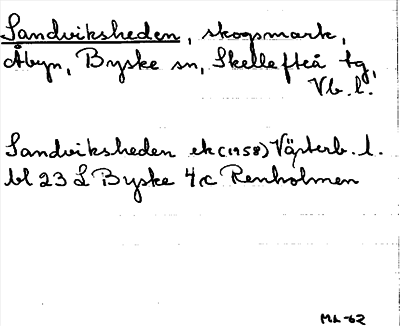 Sandviksheden, skogsmark,
Åbyn, Byske sn, Skellefteå tg,
Vb. l.
Sandviksheden ek (1958) Västerb. l.
bl 23 L Byske 4c Renholmen